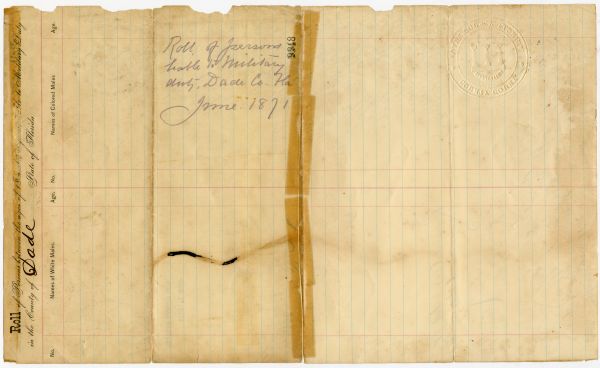 Roll of persons
liable to Military
duty, Dade Co. Fla
June 1871
Roll of Persons between the ages of 18 Military Duty
in the County of Dade State of Florida
No. Names of White Males. Age. No. Names of Colored Males. Age.